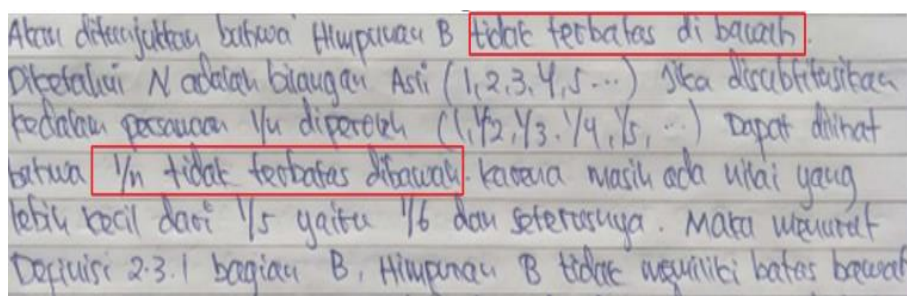 Akan ditunjukkan bahwa Himpunan B tidak terbatas di bawah.
Diketahui N adalah bilangan Asli (1,2,3,4,5...) Jika disubtitusikan
kedalam persamaan 1/n diperoleh (1,1/2,1/3.1/4,1/5,...) Dapat dilihat
bahwa 1/n tidak terbatas dibawah. karena masih ada nilai yang
lebih kecil dari 1/5 yaitu 1/6 dan seterusnya. Maka menurut
Definisi 2.3.1 bagian B, Himpunan B tidak memiliki batas bawah